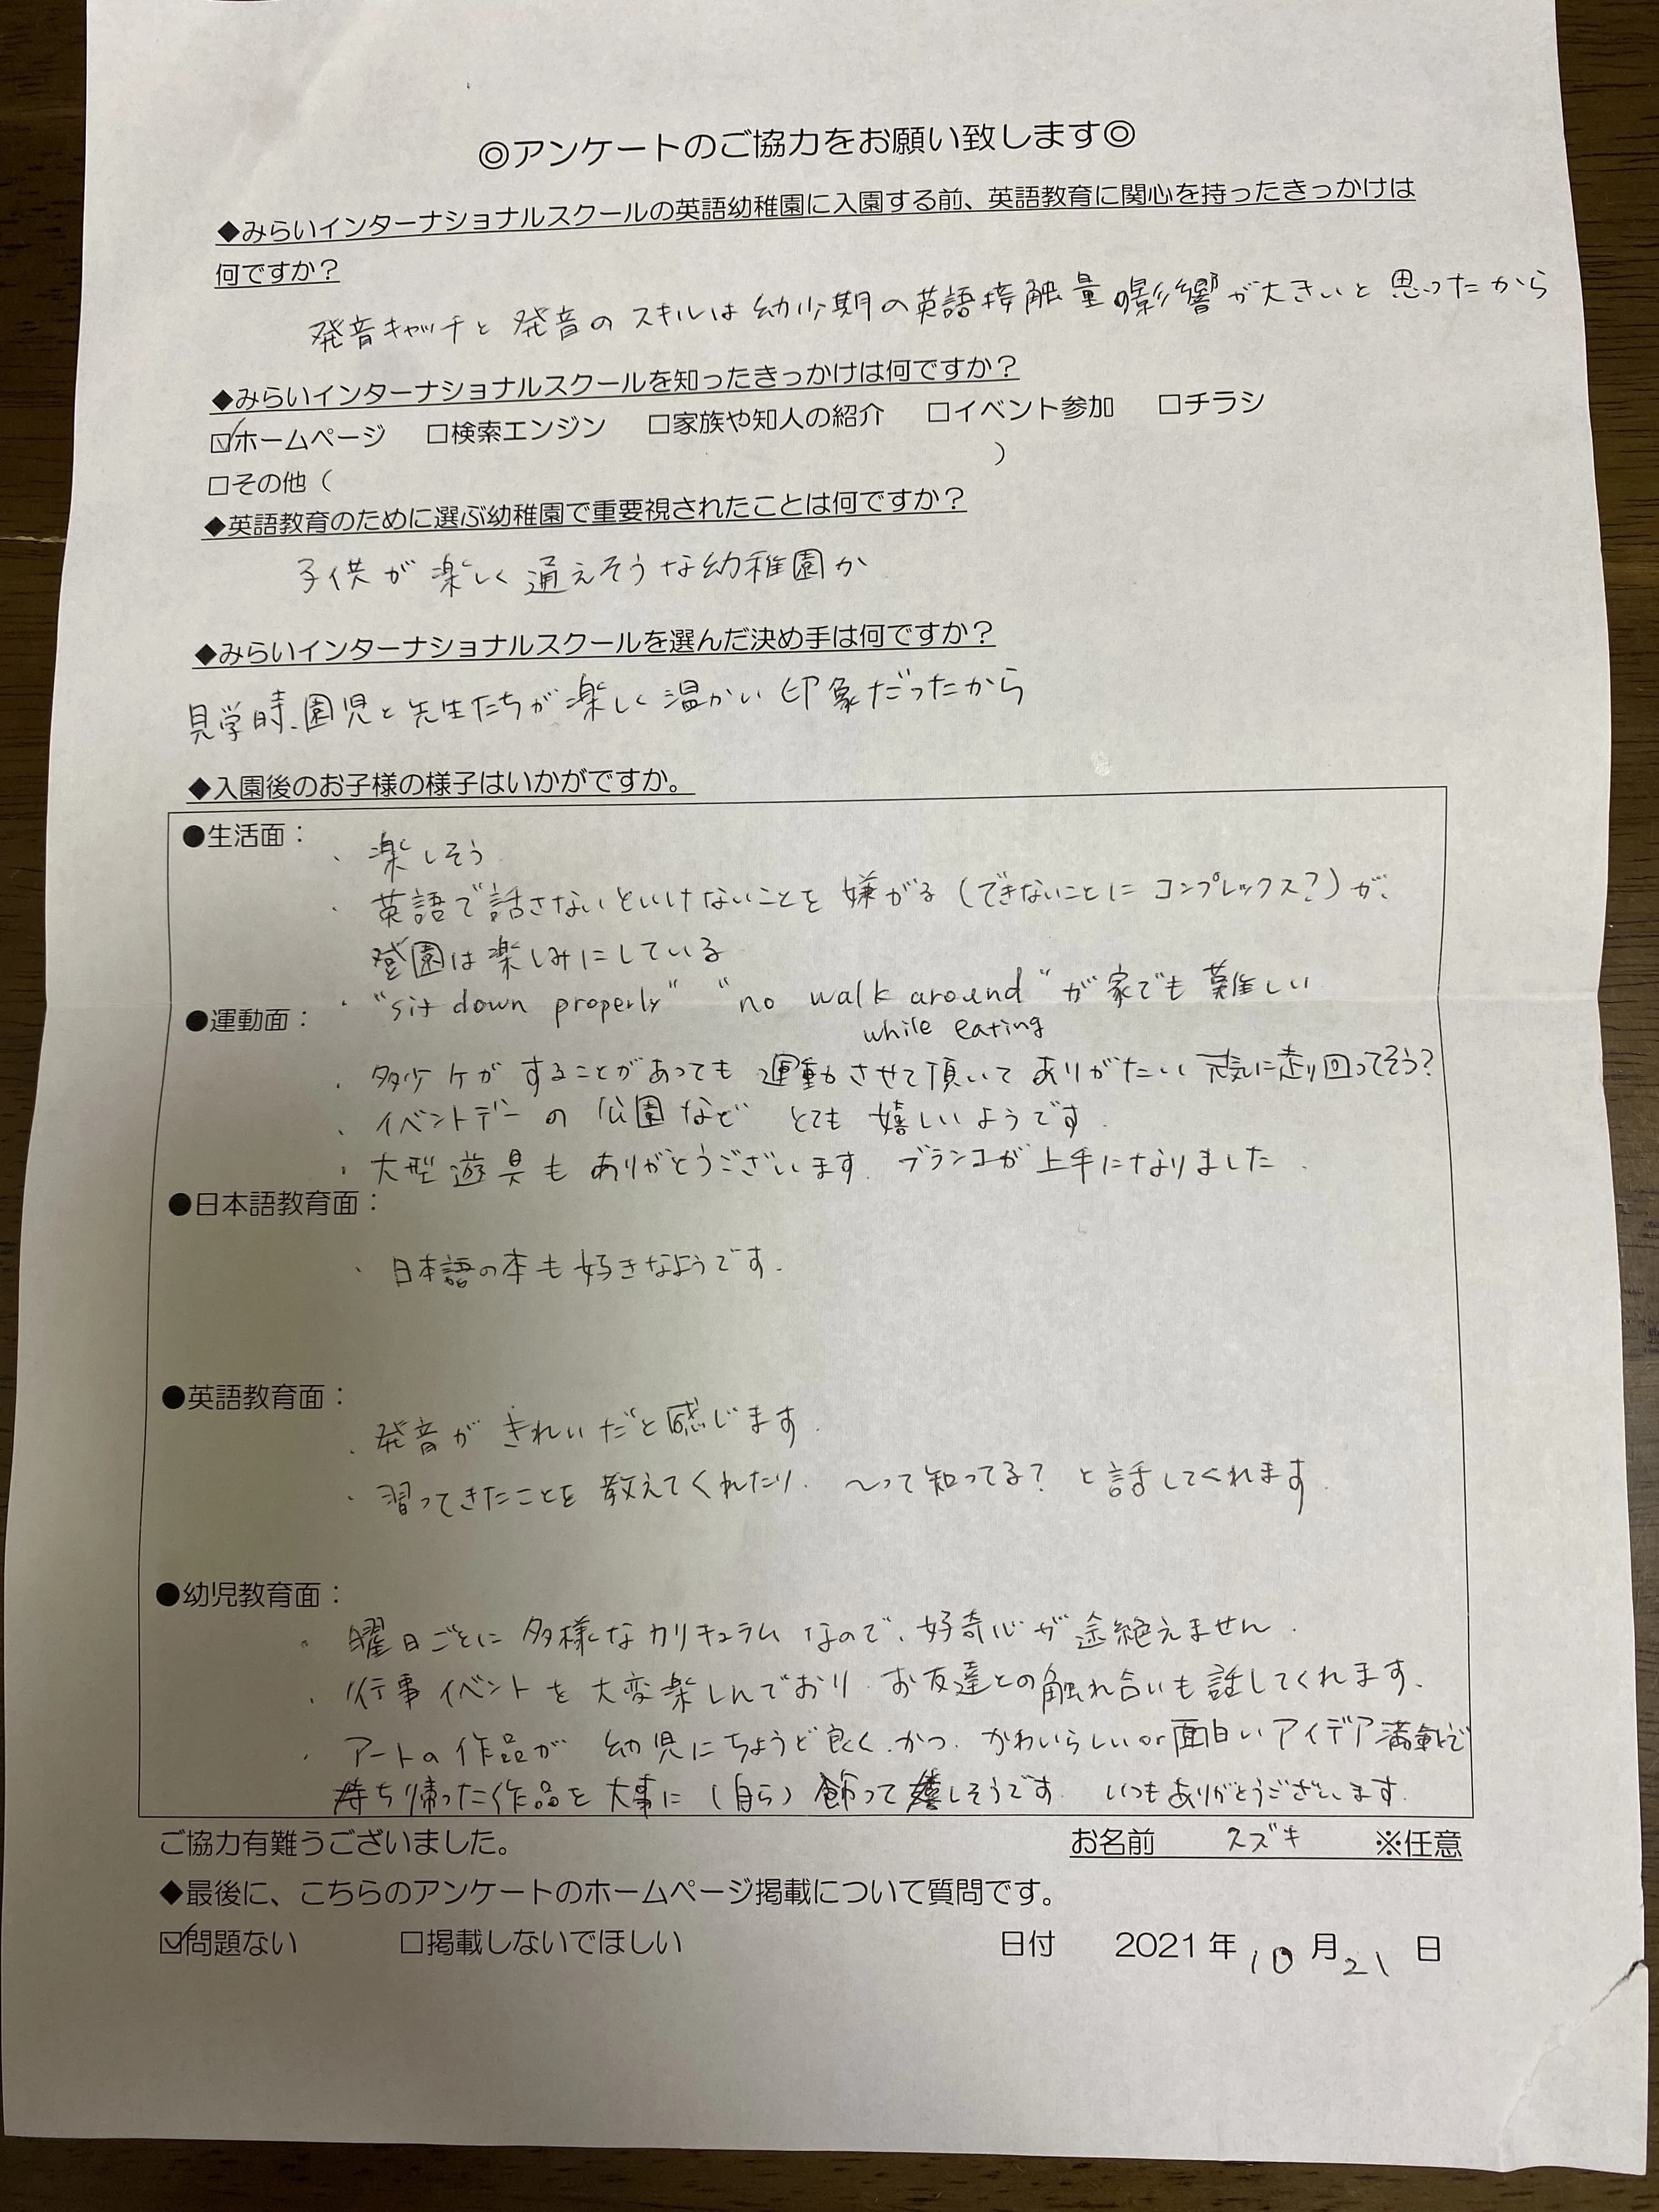 ◎アンケートのご協力をお願い致します◎
◆みらいインターナショナルスクールの英語幼稚園に入園する前、英語教育に関心を持ったきっかけは
何ですか？
発音キャッチと発音のスキルは幼少期の英語接触量の影響が大きいと思ったから
◆みらいインターナショナルスクールを知ったきっかけは何ですか？
☑ホームページ □検索エンジン □家族や知人の紹介 □イベント参加 □チラシ
□その他（ ）
◆英語教育のために選ぶ幼稚園で重要視されたことは何ですか？
子供が楽しく通えそうな幼稚園か
◆みらいインターナショナルスクールを選んだ決め手は何ですか？
見学時、園児と先生たちが楽しく温かい印象だったから
◆入園後のお子様の様子はいかがですか。
●生活面：
・楽しそう
・英語で話さないといけないことを嫌がる（できないことにコンプレックス？）が、
登園は楽しみにしている
・"sit down properly" "no walk around" が家でも難しい
while eating
●運動面：
・多少ケガすることがあっても運動させて頂いてありがたい 元気に走り回ってそう？
・イベントデーの公園など とても嬉しいようです．
・大型遊具もありがとうございます．ブランコが上手になりました．
●日本語教育面：
・日本語の本も好きなようです．
●英語教育面：
・発音がきれいだと感じます．
・習ってきたことを教えてくれたり、～って知ってる？と話してくれます．
●幼児教育面：
・曜日ごとに多様なカリキュラムなので、好奇心が途絶えません．
・行事イベントを大変楽しんでおり、お友達との触れ合いも話してくれます．
・アートの作品が 幼児にちょうど良く、かつ、かわいらしいor面白いアイデア満載で
持ち帰った作品を大事に（自ら）飾って嬉しそうです．いつもありがとうございます．
ご協力有難うございました。
お名前 スズキ ※任意
◆最後に、こちらのアンケートのホームページ掲載について質問です。
☑問題ない □掲載しないでほしい 日付 2021年10月21日